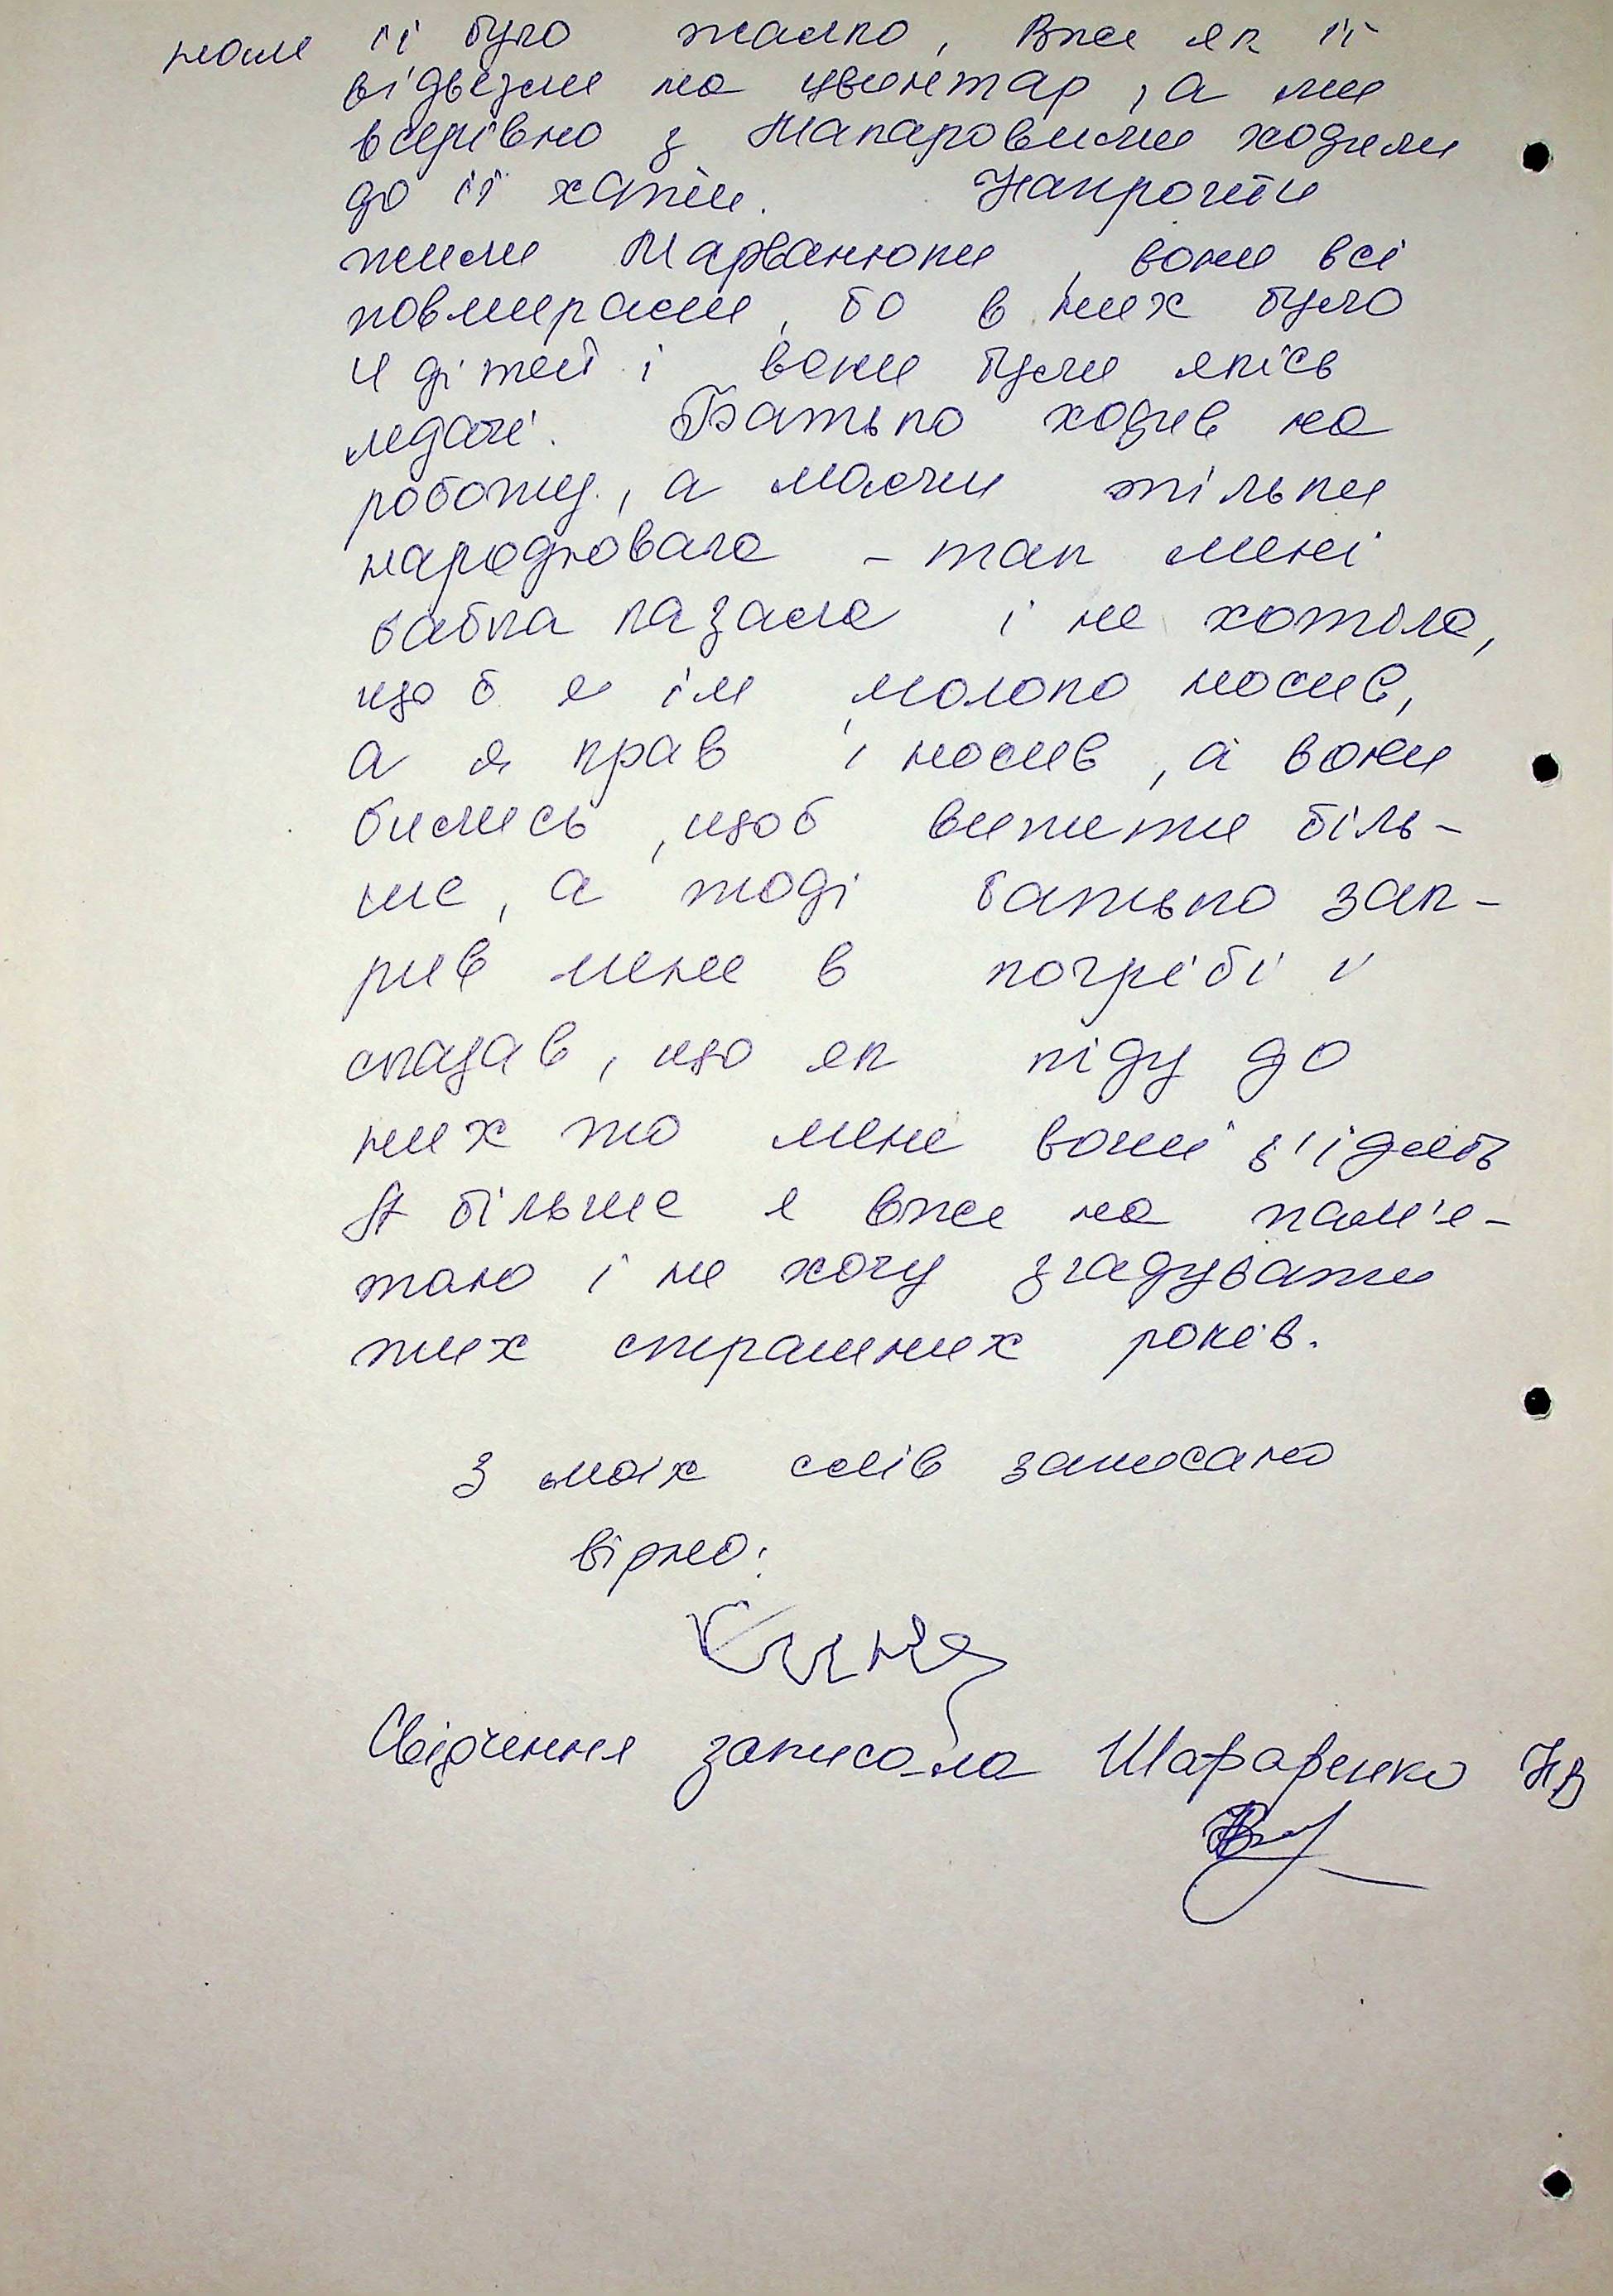 нам її було жалко, Вже як її
відвезли на цвинтар, а ми
всерівно з Макаровими ходили
до її хати. Напроти
жили Марванюки, вони всі
повмирали, бо в них було
4 дітей і вони були якісь
ледачі. Батько ходив на
роботу, а мачи тільки
народжовала - так мені
бабка казала і не хотіла,
щоб я їм молоко носив,
а я крав і носив, а вони
бились, щоб випити біль-
ше, а тоді батько зак-
рив мене в погрібі і
сказав, що як піду до
них то мене вони з'їдять
А більше я вже на пам'я-
таю і не хочу згадувати
тих страшних років.
З моїх слів записано
вірно:
Свідчення записала Шараренко НВ